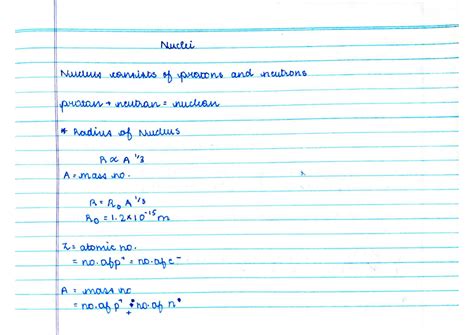 Nuclei
Nucleus consists of protons and neutrons
proton + neutron = nucleon
* Radius of Nucleus
R ∝ A^1/3
A = mass no.
R = R₀ A^1/3
R₀ = 1.2 × 10^-15 m
Z = atomic no.
= no. of p⁺ = no. of e⁻
A = mass no
= no. of p⁺ + no. of n°